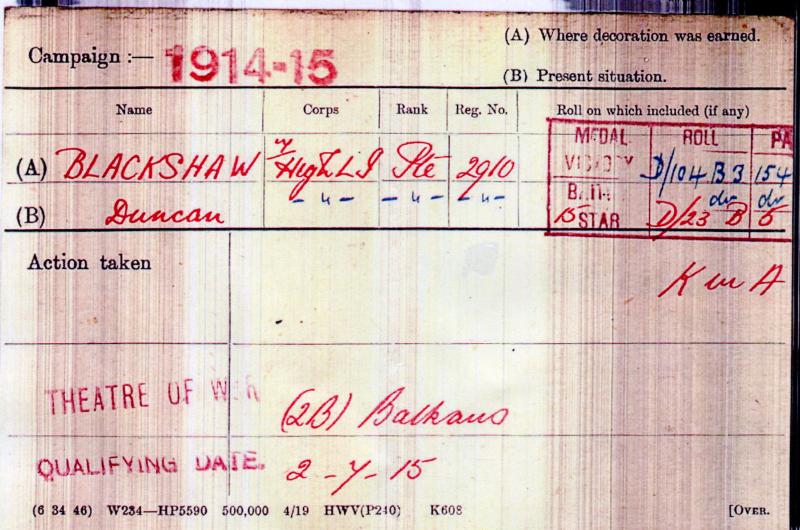 (A) Where decoration was earned.
Campaign :— 1914-15
(B) Present situation.
Name Corps Rank Reg. No. Roll on which included (if any)
MEDAL ROLL PA
(A) BLACKSHAW 7/ High L I Pte 2910 VICTORY D/104 B3 154
(B) Duncan -"- -"- -"- BRIT. do do
15 STAR D/23 B 5
Action taken
K in A
THEATRE OF WAR (2B) Balkans
QUALIFYING DATE. 2-7-15
(6 34 46) W234—HP5590 500,000 4/19 HWV(P240) K608 [OVER.